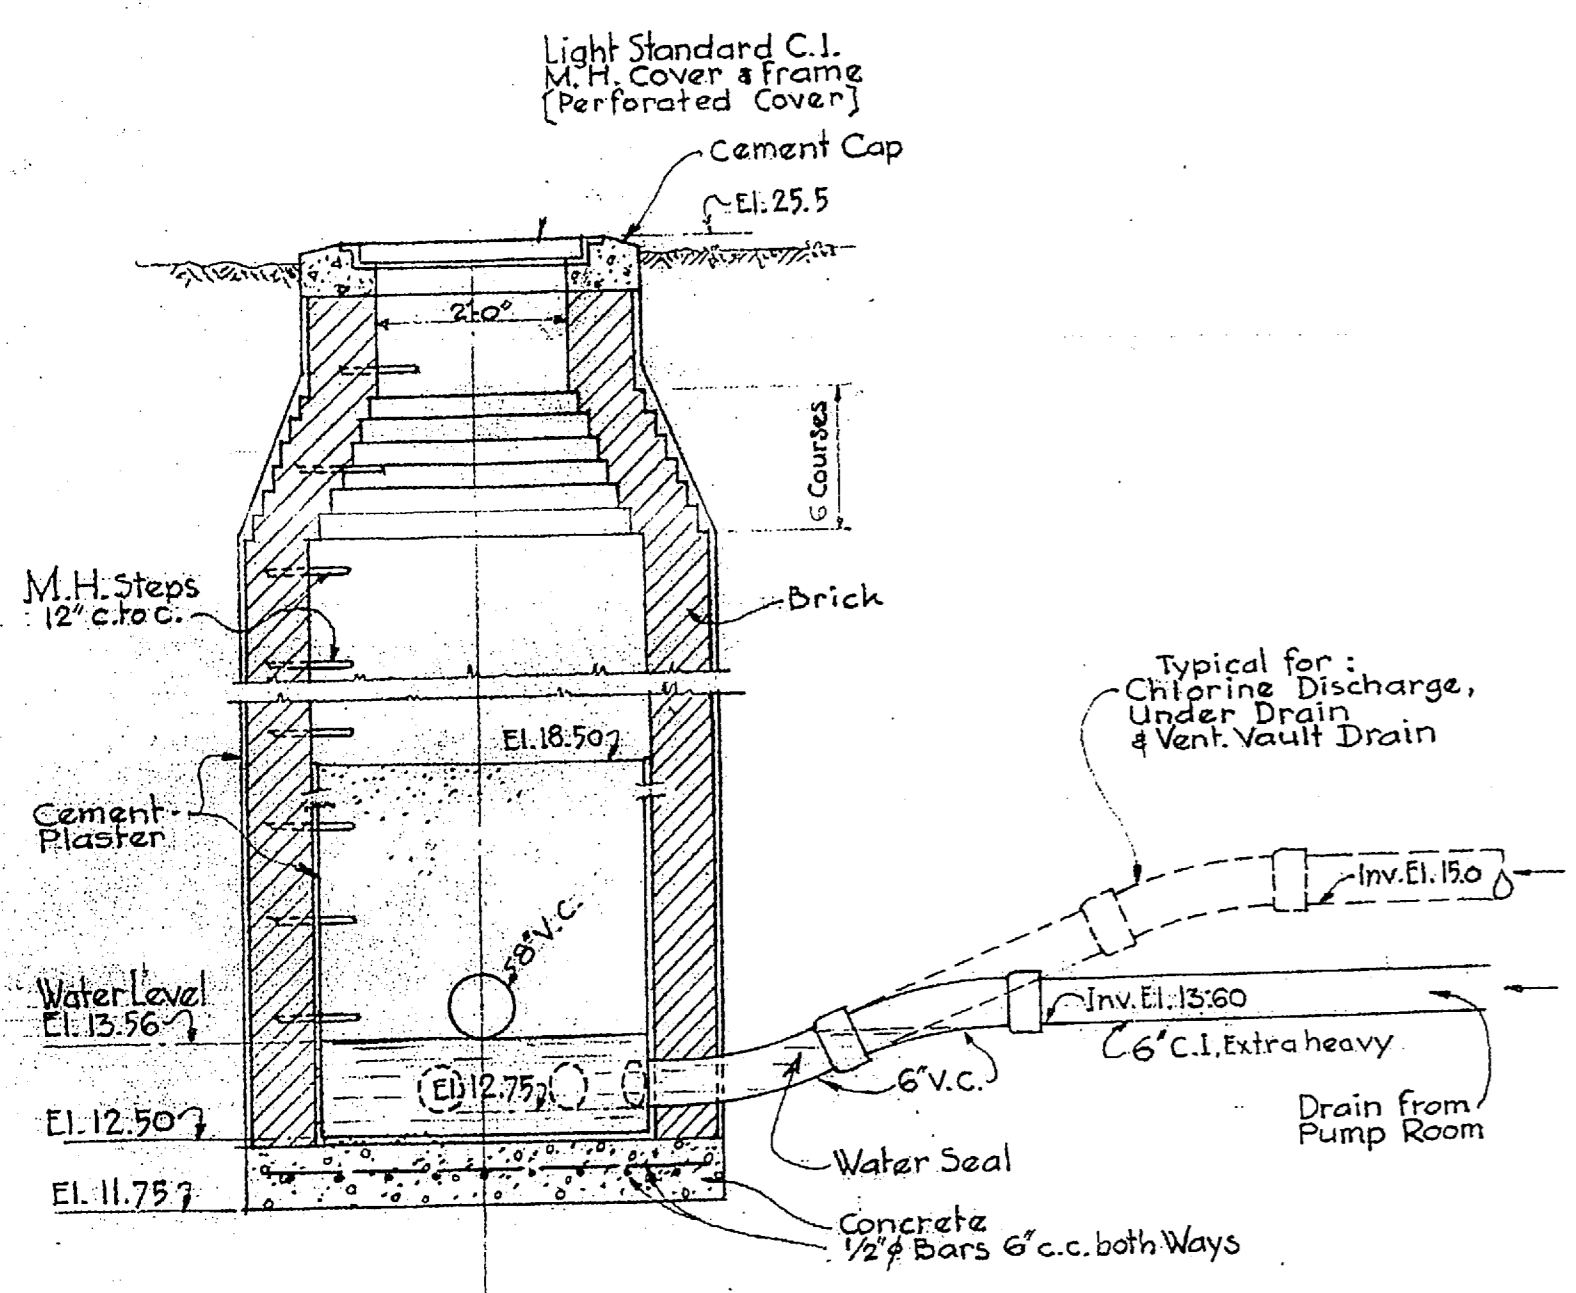 Light Standard C.I.
M.H. Cover & Frame
[Perforated Cover]
Cement Cap
El. 25.5
2'-0"
6 Courses
M.H. Steps
12" c. to c.
Brick
Typical for :
Chlorine Discharge,
Under Drain
& Vent. Vault Drain
El. 18.50
Cement
Plaster
Inv. El. 15.0
8" V.C.
Water Level
El. 13.56
Inv. El. 13.60
6" C.I. Extra heavy
El. 12.75
6" V.C.
El. 12.50
Drain from
Pump Room
Water Seal
El. 11.75
Concrete
1/2" ϕ Bars 6" c.c. both Ways